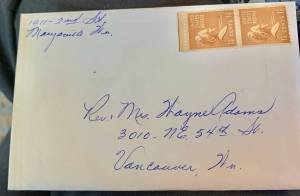 1011-2nd St.
Marysville Wn.
Rev. Mrs. Wayne Adams
3010-N.E. 54th St.
Vancouver, Wn.